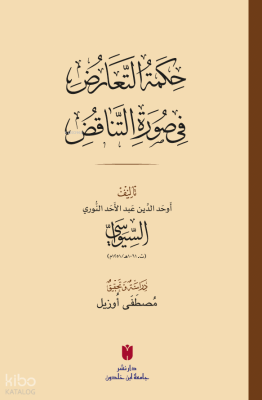 حِكْمَةُ التَّعَارُضِ
فِي صُورَةِ التَّنَاقُضِ
تَأْلِيفُ
أوحَد الدِّين عَبد الأَحَد النُّوري
السِّيوَاسِيّ
(ت. ١٠٦١هـ/١٦٥١م)
دِرَاسَةُ وَتَحْقِيقُ
مُصطَفَى أُوزيل
دار نشر
جامعة ابن خلدون
kibo
KATALOG